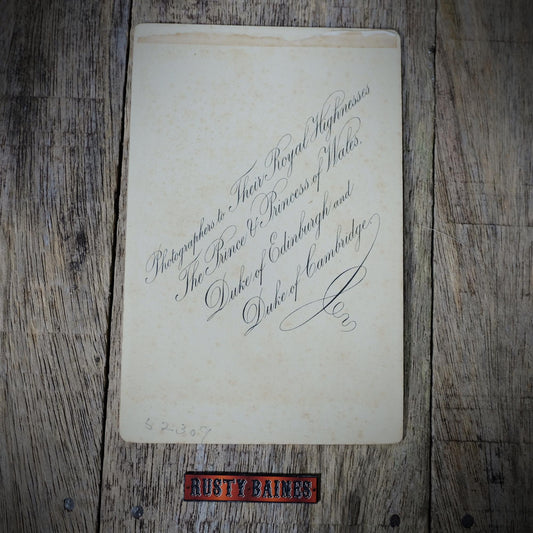 Photographers to Their Royal Highnesses
The Prince & Princess of Wales.
Duke of Edinburgh and
Duke of Cambridge.
52307
RUSTY-BAINES